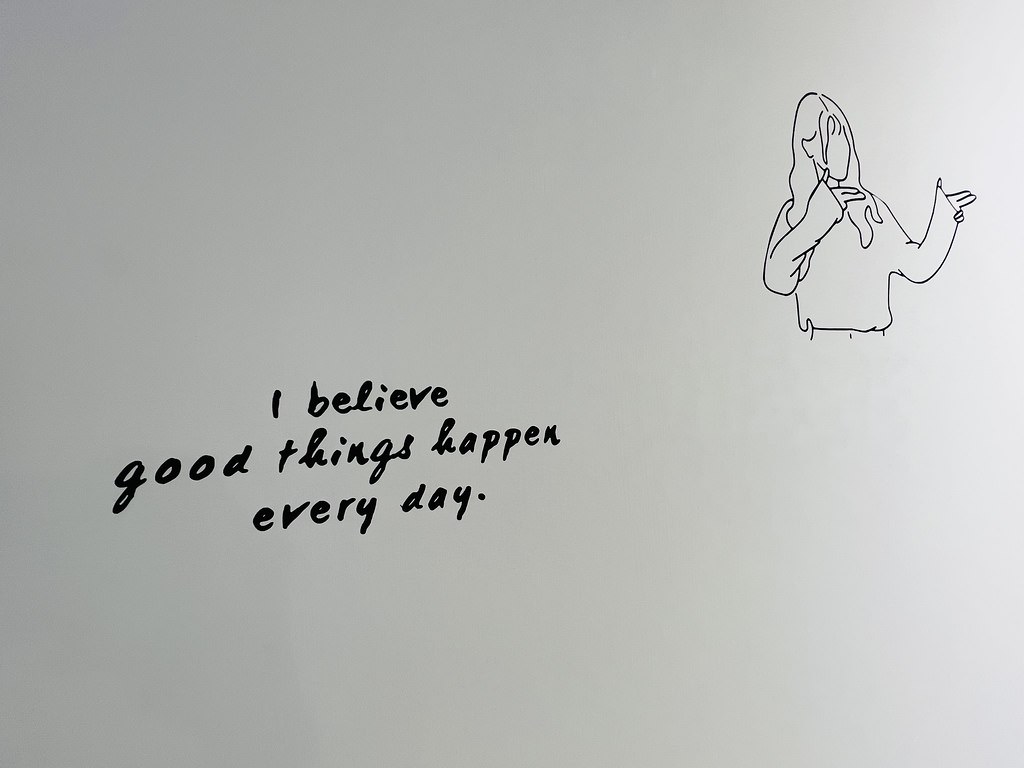 I believe
good things happen
every day.